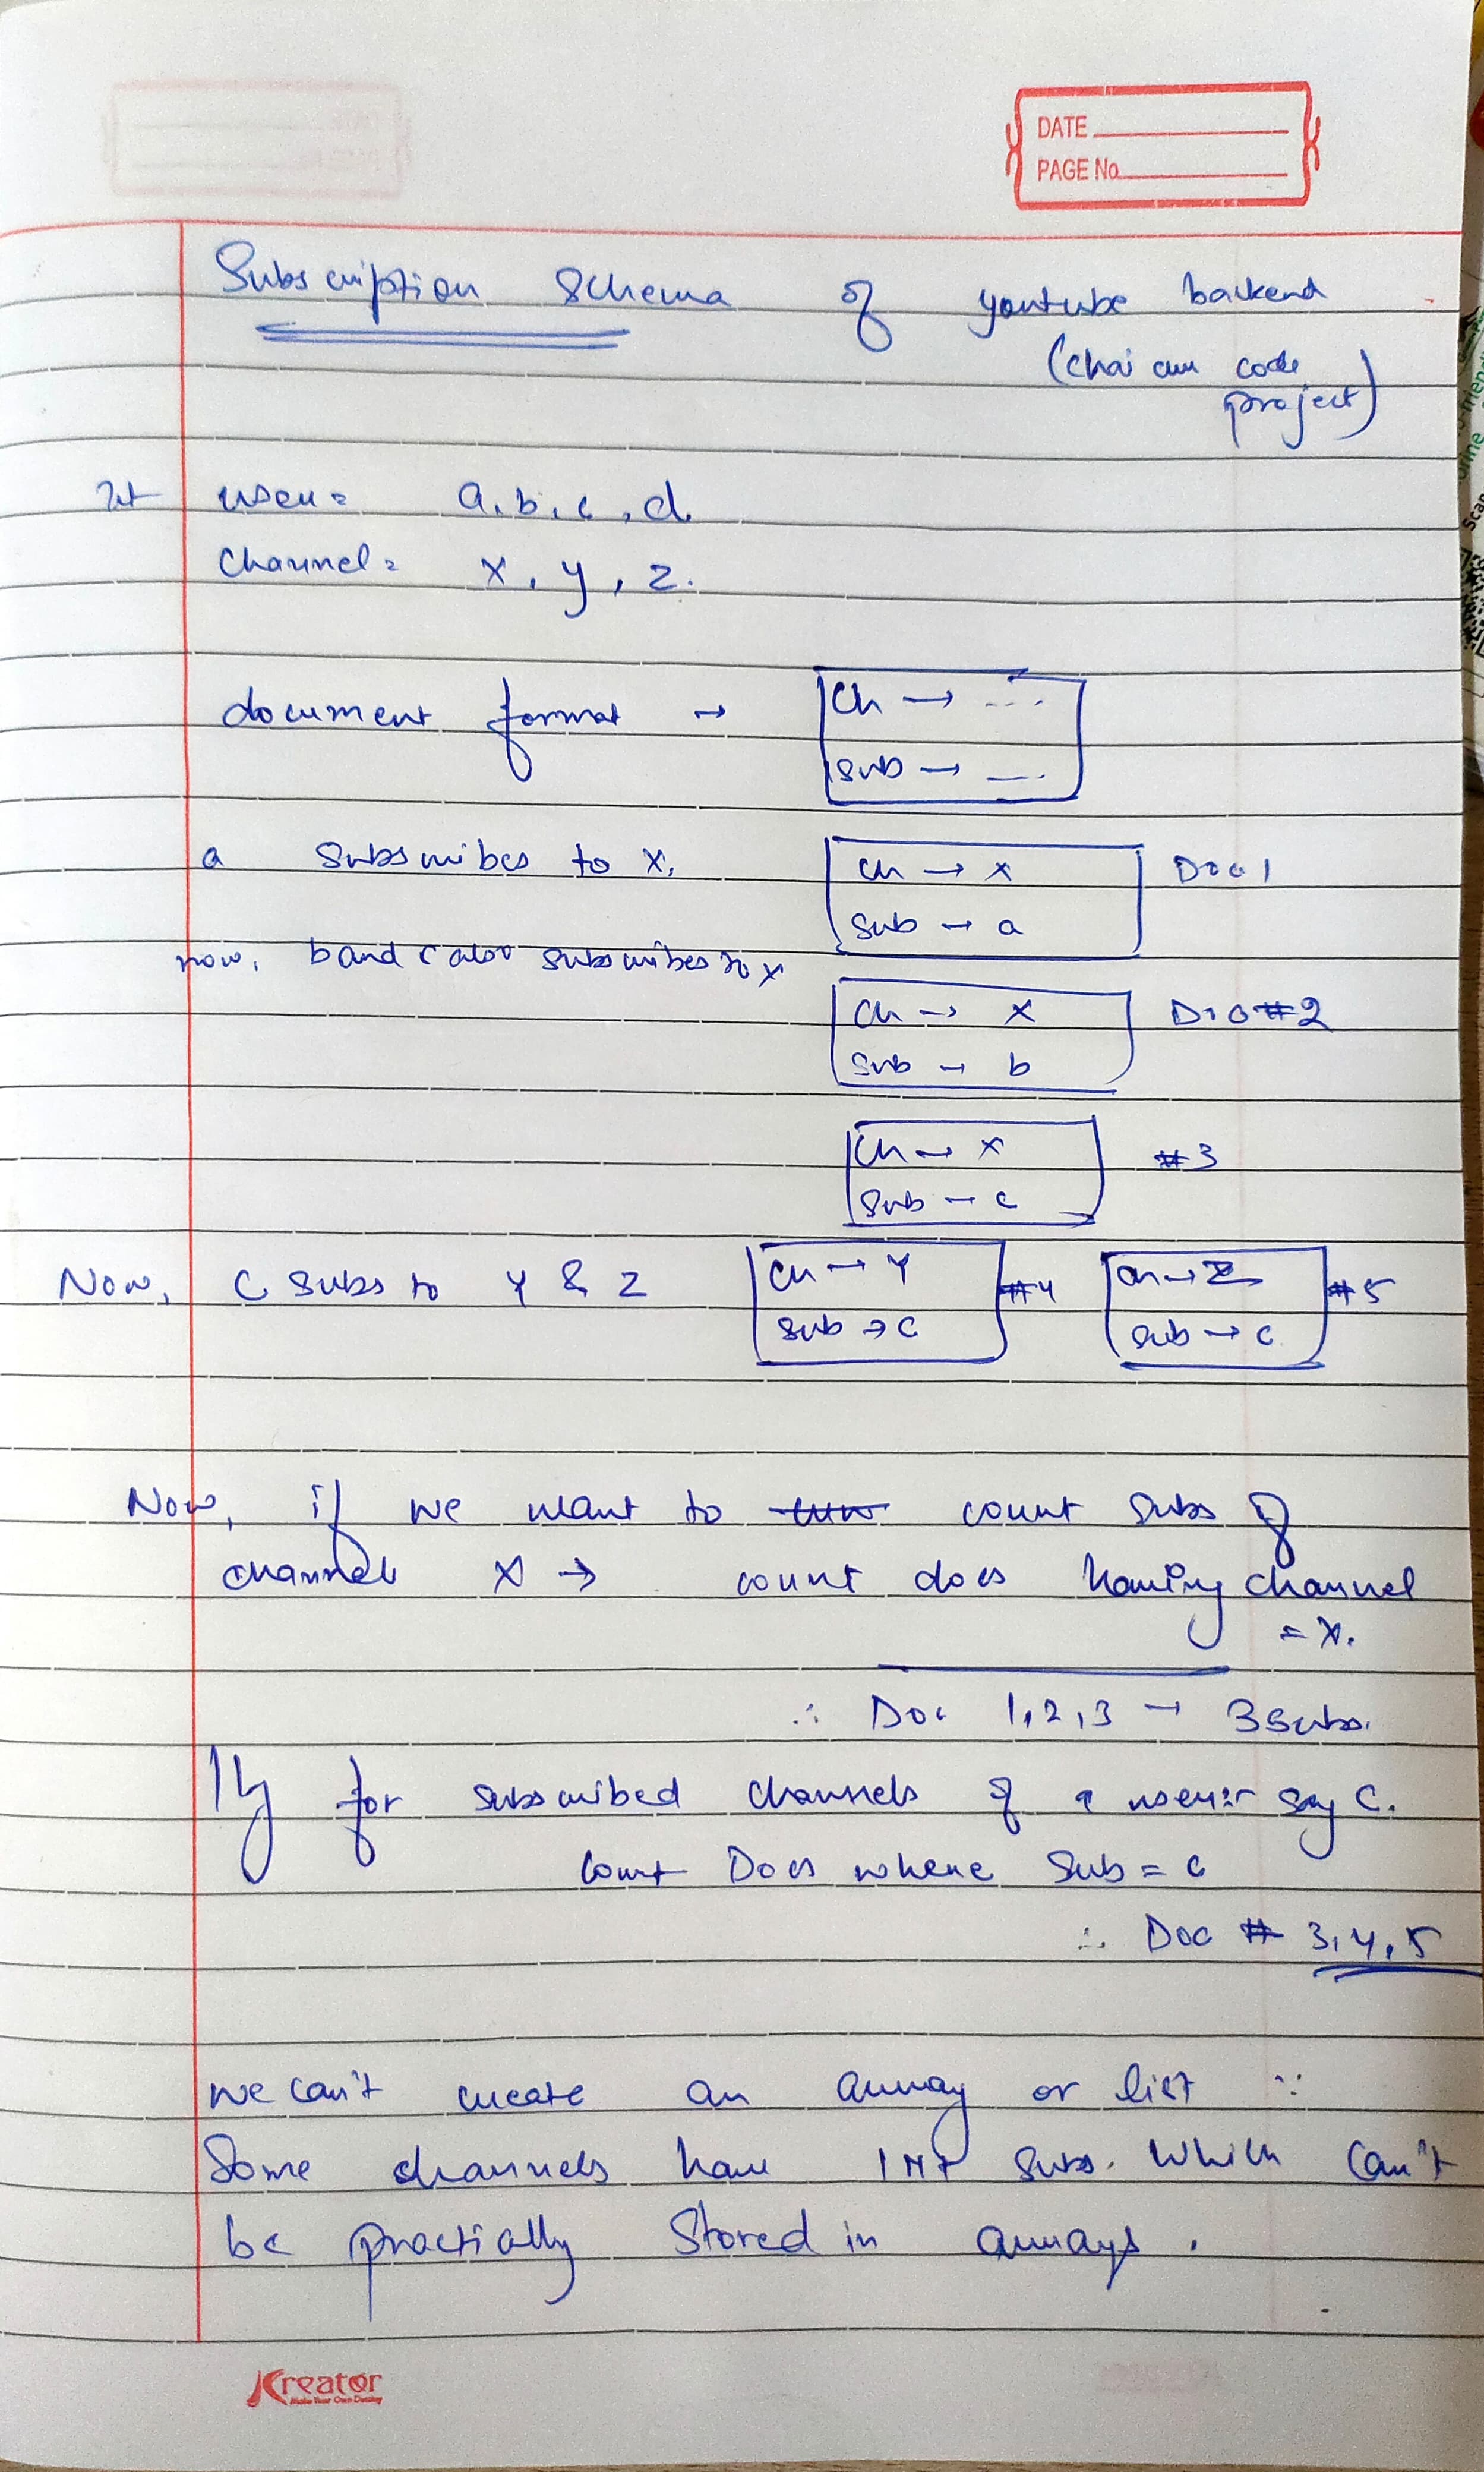 DATE
PAGE No.
Subscription Schema of youtube backend
(chai aur code
project)
let user = a, b, c, d
Channel = x, y, z.
document format → Ch → ---
sub → ---
a subscribes to x. Ch → x Doc 1
sub → a
now, b and c also subscribes to x
Ch → x Doc #2
Sub → b
Ch → x #3
Sub → c
Now, C subs to Y & Z Ch → Y #4 Ch → Z #5
sub → c sub → c
Now, if we want to count subs of
channel X → count docs having channel
= X.
∴ Doc 1, 2, 3 → 3 subs.
lly for subscribed channels of a user say C.
Count Docs where Sub = c
∴ Doc # 3, 4, 5
we can't create an array or list ∵
Some channels have 1M+ subs. Which can't
be practially Stored in arrays.
Kreator
Make Your Own Destiny